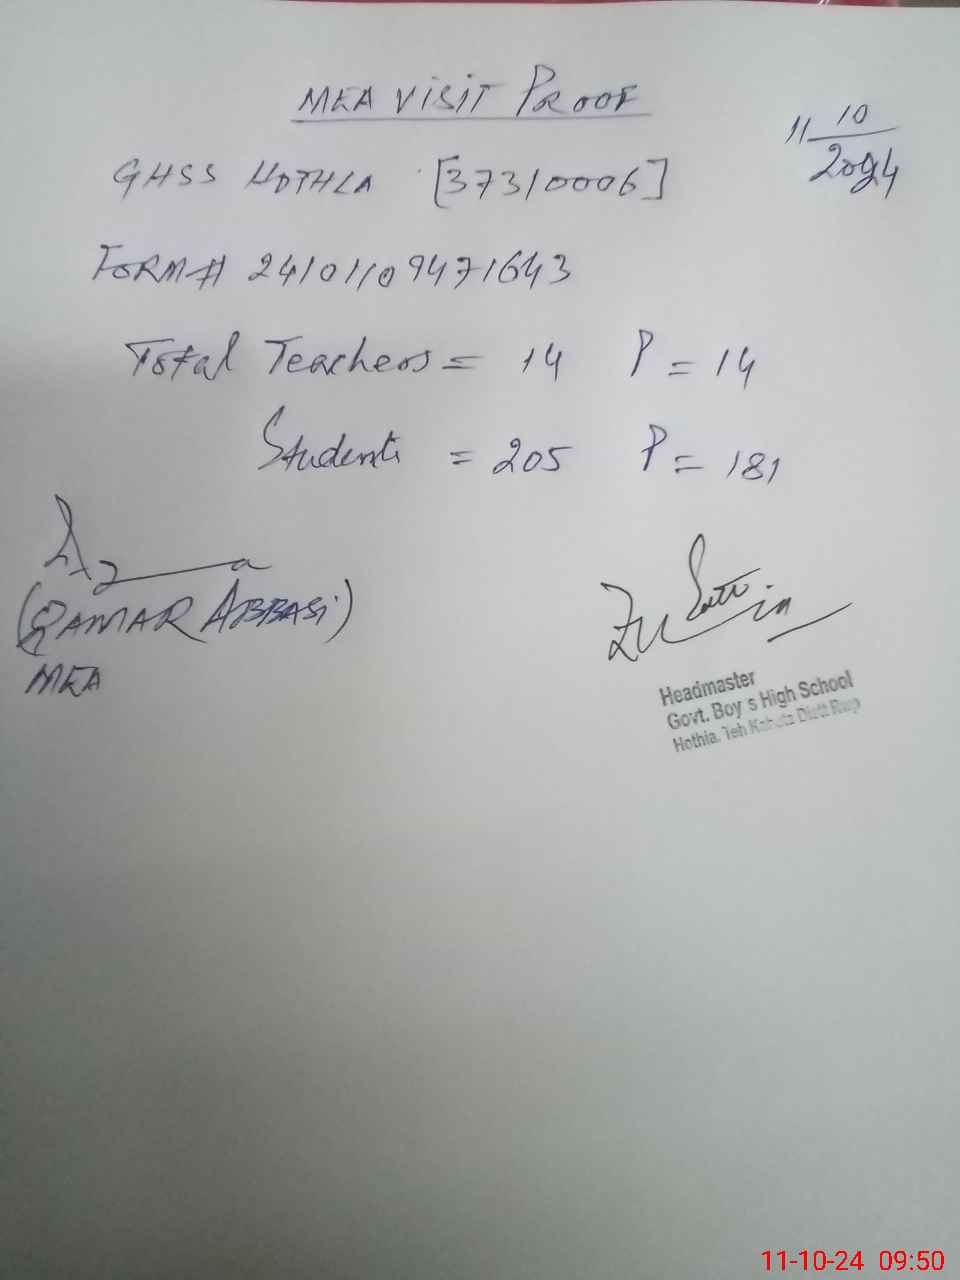 MEA VISIT PROOF
11 10
2024
GHSS HOTHLA [37310006]
FORM# 24101109471643
Total Teachers = 14 P = 14
Students = 205 P = 181
(QAMAR ABBASi)
MEA
Headmaster
Govt. Boy's High School
Hothla, Teh Kahuta Distt Rwp
11-10-24 09:50